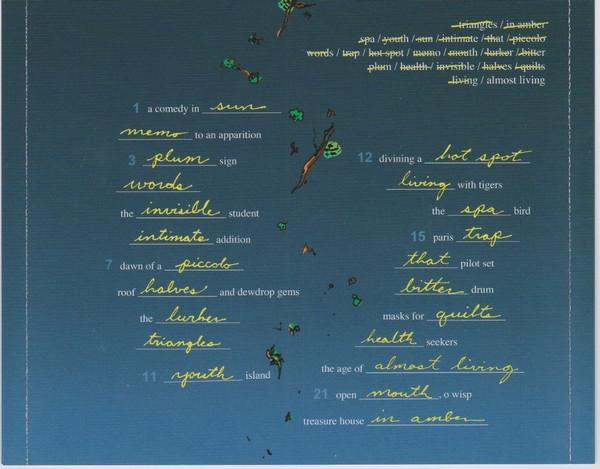 triangles / in amber
spa / youth / sun / intimate / that / piccolo
words / trap / hot spot / memo / mouth / lurker / bitter
plum / health / invisible / halves / quilts
living / almost living
1 a comedy in sun
memo to an apparition
3 plum sign
words
the invisible student
intimate addition
7 dawn of a piccolo
roof halves and dewdrop gems
the lurker
triangles
11 youth island
12 divining a hot spot
living with tigers
the spa bird
15 paris trap
that pilot set
bitter drum
masks for quilts
health seekers
the age of almost living
21 open mouth, o wisp
treasure house in amber